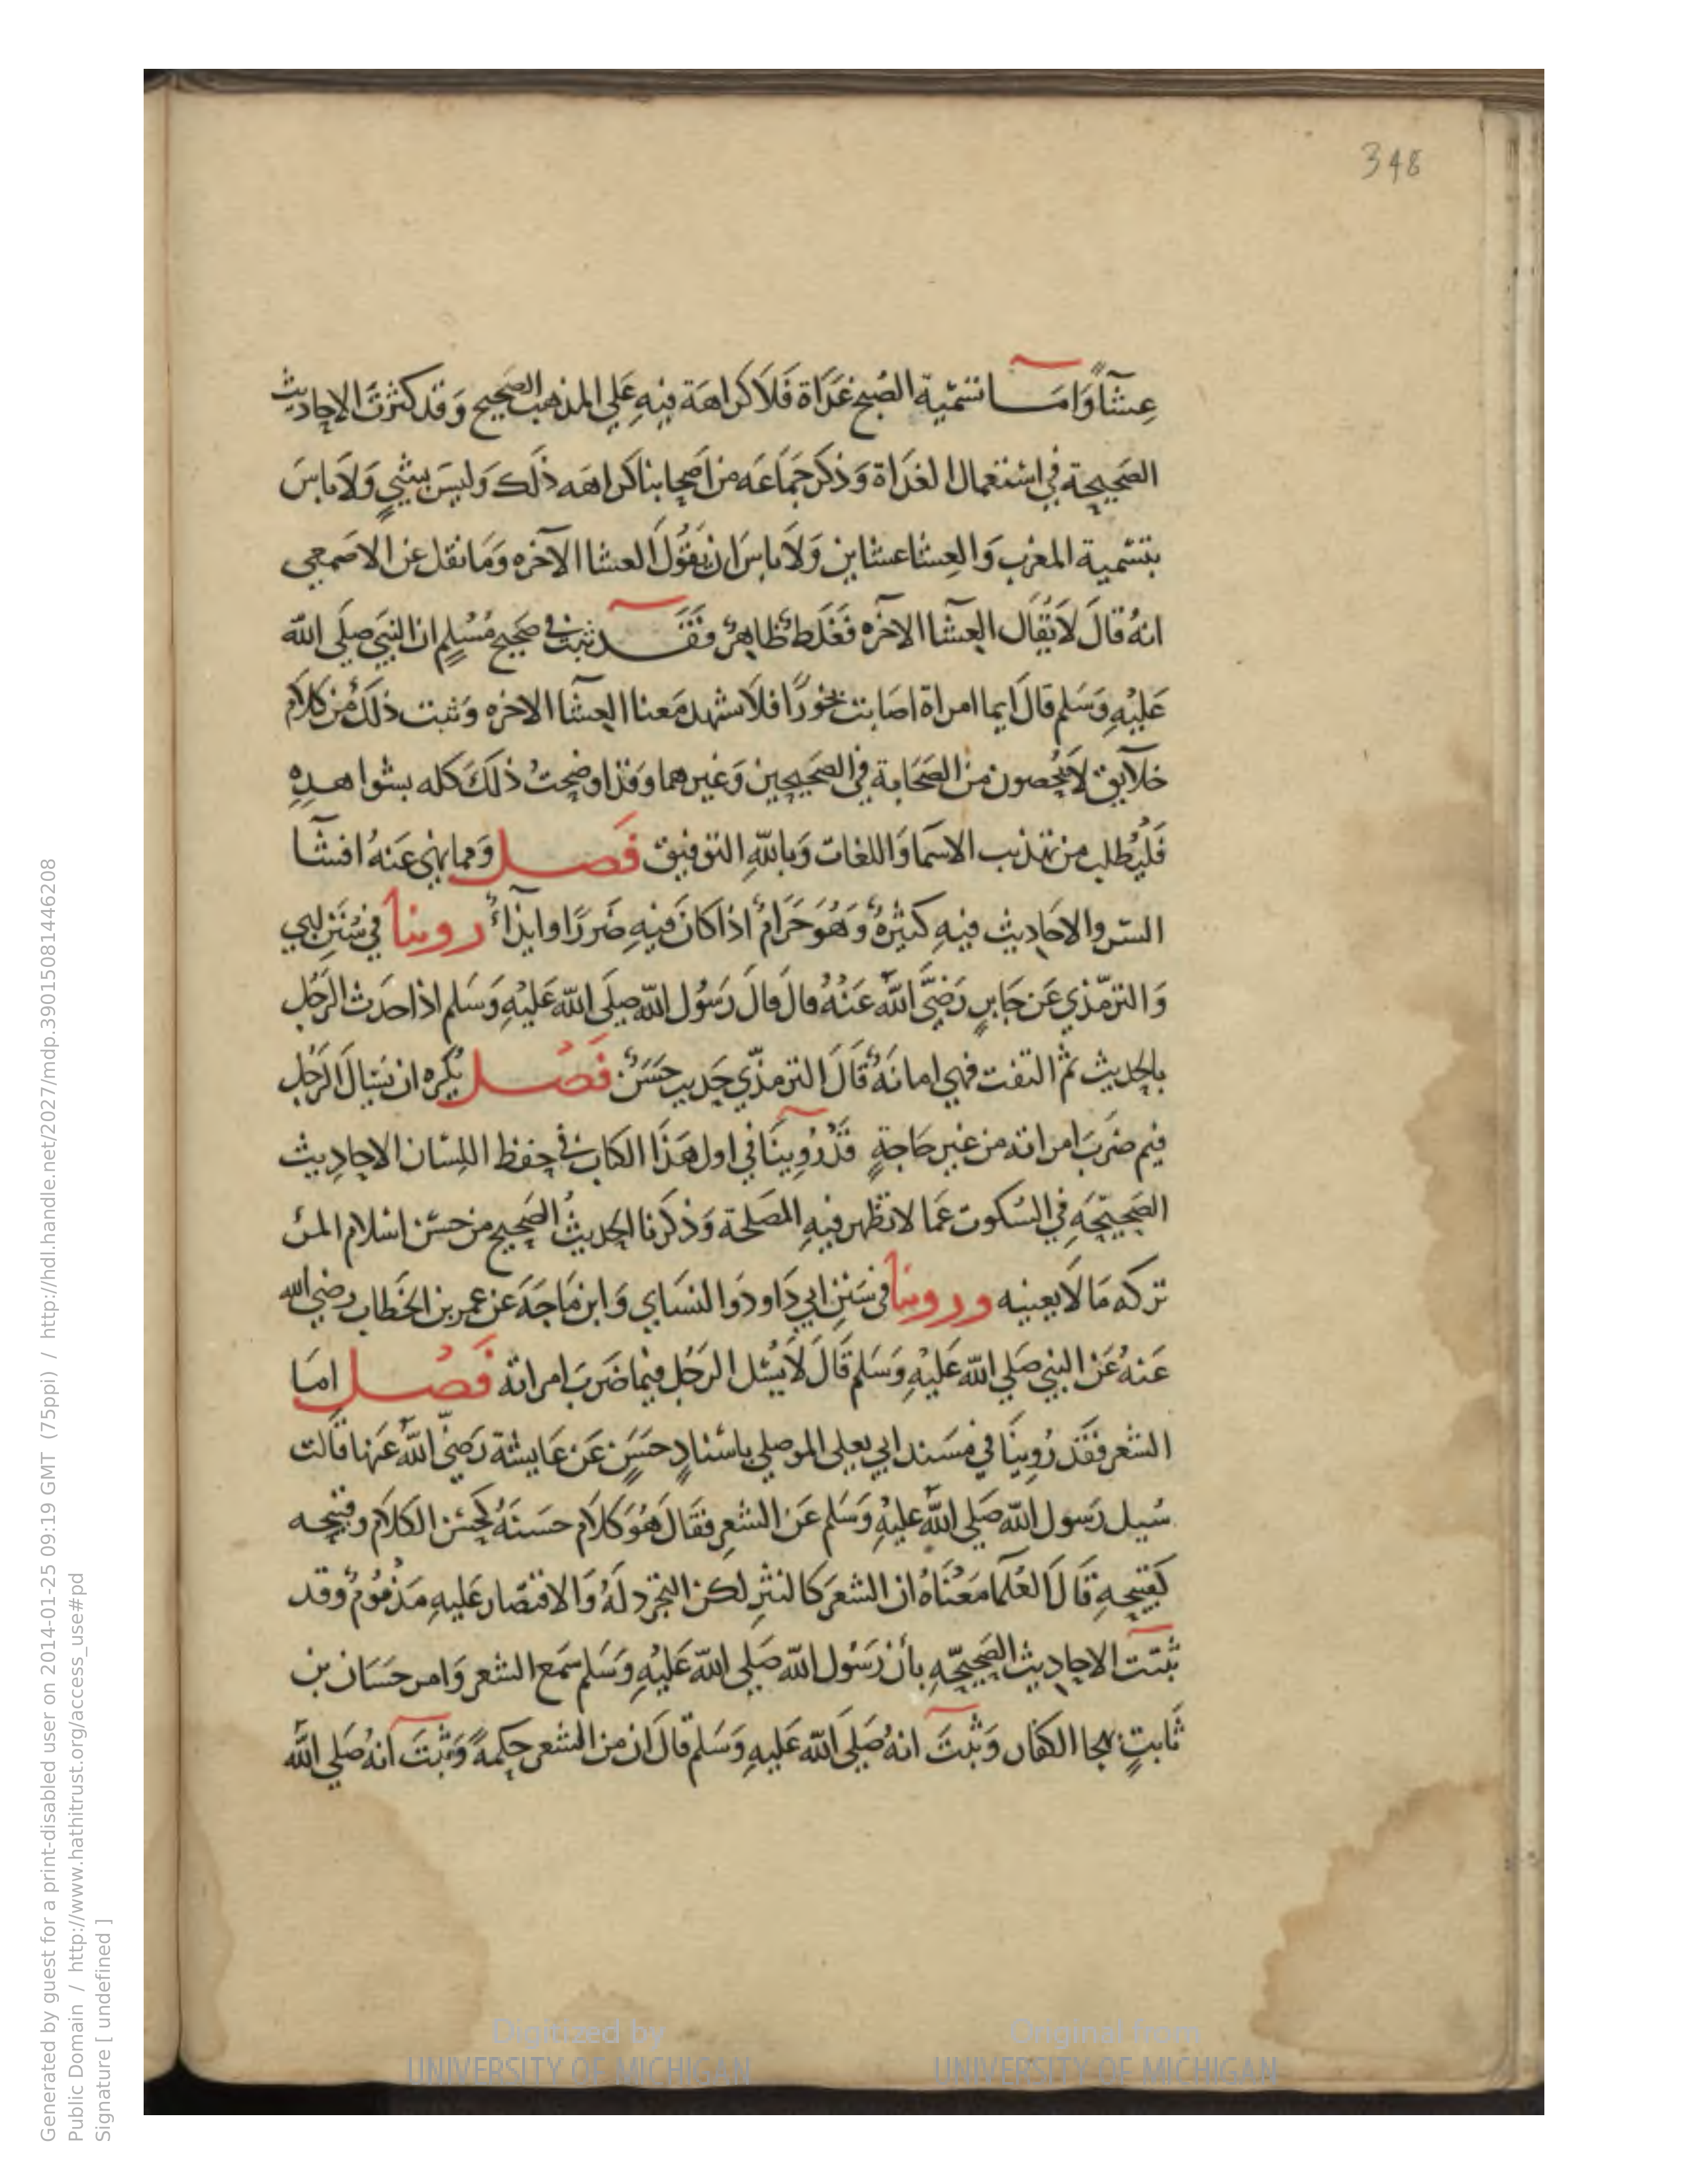 348
عِشآً وَامَـــا تسَميَة الصُبح غَدَاة فَلاَ كَراهَة فيهِ عَلي المذهب الصَّحيح وَقَد كثرتَ الاحاديث
الصَحيحة في استعمال الغدَاة وَذكَرَ جَمَاعَه من اَصحابنا كَراهَه ذلَك وَليسَ بشيٍ وَلاَ باسَ
بتسَمية المغرب وَالعِشا عشاين وَلاَ باسَ ان نقُول العشا الآخره وَمَا نقل عن الاصَمعي
انهُ قالَ لاَ يُقَال العِشآ الآخره فَغَلَطٌ ظاهرٌ فَقَـــد ثبت في صَحيح مُسْلِمٍ ان النبيَ صَلَي الله
عَليْهِ وَسَلم قالَ ايما امراة اصَابت بخورًا فلاَ تشهد مَعنا العِشآ الاخره وَثبت ذلَك من كلاَم
خلآيق لاَ يُحصون منَ الصَحَابة في الصَحيحين وَغيرهما وَقَد اوضحتُ ذلَكَ كله بشواهدِهِ
فَليُطلب من تهذيب الاسمَا وَاللغات وَبالله التوفيق فَصـــل وَمما ينهي عَنهُ افشآ
السّر والاحَاديث فيهِ كثيْرهٌ وَهُوَ حَرَامٌ اذا كانَ فيهِ ضَررًا وايذآءٌ روينا في سُنَنِ ابي
وَالترمّذي عَن جَابرٍ رَضيَّ اللهُ عَنهُ قالَ قالَ رَسُول الله صَلَي الله عَليْهِ وَسَلم اذا حدَث الرَجُل
بالحديث ثم التفت فهي امانَهٌ قَالَ الترمذّي حَديث حَسَنٌ فَصُـــل يُكره ان يسَال الرَجُل
فيم ضَربَ امراته من غير حَاجةٍ قَدْ رُوينَا في اول هَذَا الكتاب في حِفظ اللِسَان الاحاديث
الصَحيحَّه في السُكوت عَما لا تظهر فيهِ المَصلحة وَذكَرنا الحديثُ الصَحيح من حسْن اسْلام المرْ
تركه مَا لاَ يعنيه وروينا في سَنَنِ ابي دَاود وَالنسَاي وَابن مَاجَهَ عَن عمر بن الخَطاب رضي الله
عَنهُ عَن النبي صَلي الله عَليْهِ وَسَلم قَالَ لاَ يسُئل الرَجُل فيمَا ضَربَ امراته فَصُـــل امَا
الشعر فقَد رُوينَا في مسَند ابي يعلي الموصلي باسْنادٍ حَسَنٍ عَن عَايشة رَضيّ اللهُ عَنها قَالت
سُيل رَسول الله صَلَي اللهُ عليْهِ وَسَلم عَن الشعرِ فقَالَ هُوَ كلاَم حسَنَهُ كحَسْن الكلاَم وقبيحه
كَقبيحهِ قَالَ العُلَمَا مَعْنَاهُ ان الشعرَ كالنثرِ لكن التجرد لَهُ وَالاقتصَار عَليهِ مَذْمُومٌ وقد
ثبتت الاحاديث الصَحيحَّهِ بأن رَسْول الله صَلَي الله عَليْهِ وَسَلم سَمع الشعر وَامر حَسَان بن
ثَابتٍ بهجا الكفار وَثبتَ انهُ صَلَي الله عَليهِ وَسَلم قالَ ان من الشعر حِكمةً وَثبَتَ انهُ صَلي الله
Generated by guest for a print-disabled user on 2014-01-25 09:19 GMT (75ppi) / http://hdl.handle.net/2027/mdp.39015081446208
Public Domain / http://www.hathitrust.org/access_use#pd
Signature [ undefined ]
Digitized by
UNIVERSITY OF MICHIGAN
Original from
UNIVERSITY OF MICHIGAN